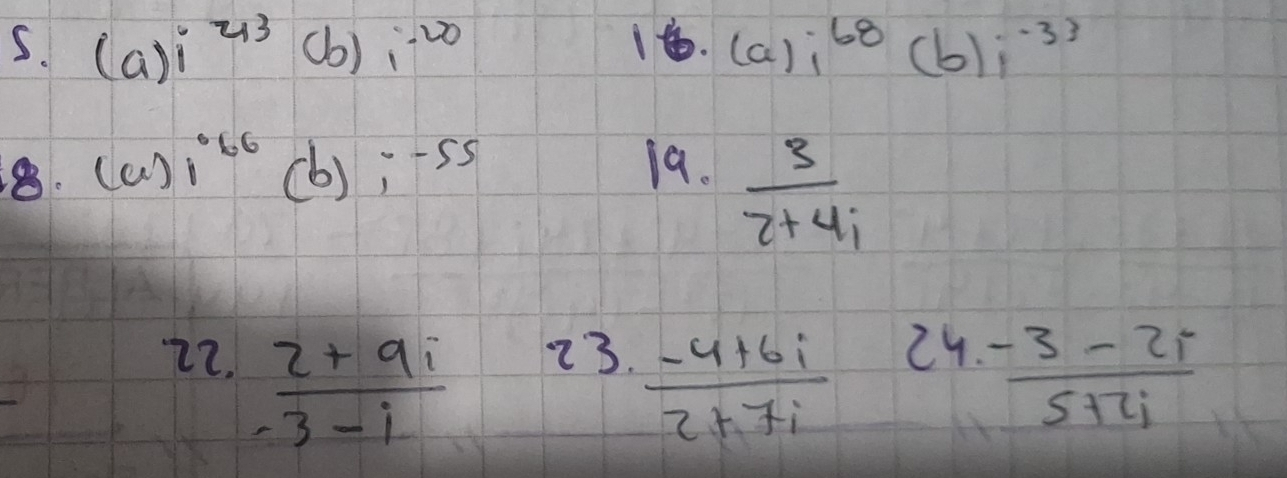 5. (a) i^43 (b) i^-20 16. (a) i^68 (b) i^-33
18. (a) i^66 (b) i^-55 19. 3/(2+4i)
22. (2+9i)/(-3-i) 23. (-4+6i)/(2+7i) 24. (-3-2i)/(5+2i)